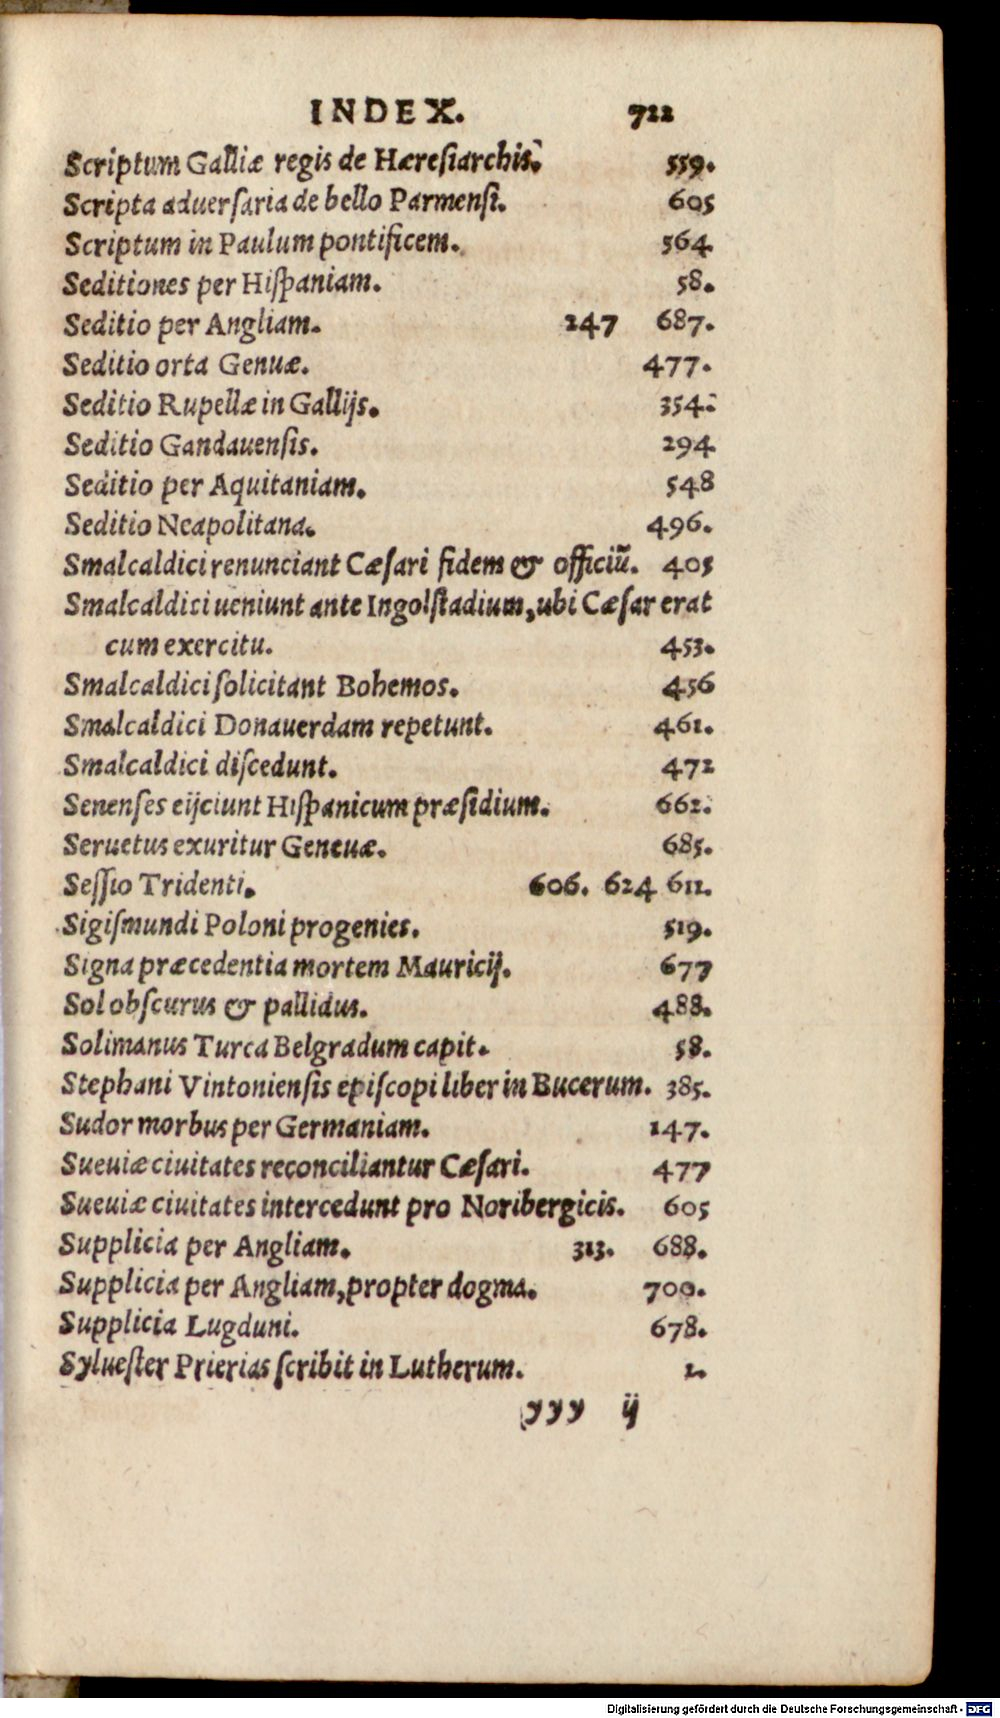 INDEX. 722
Scriptum Galliæ regis de Hæresiarchis. 559.
Scripta aduersaria de bello Parmensi. 605
Scriptum in Paulum pontificem. 564
Seditiones per Hispaniam. 58.
Seditio per Angliam. 247 687.
Seditio orta Genuæ. 477.
Seditio Rupellæ in Gallijs. 354.
Seditio Gandauensis. 294
Seditio per Aquitaniam. 548
Seditio Neapolitana. 496.
Smalcaldici renunciant Cæsari fidem & officiū. 405
Smalcaldici ueniunt ante Ingolstadium, ubi Cæsar erat
cum exercitu. 453.
Smalcaldici solicitant Bohemos. 456
Smalcaldici Donauerdam repetunt. 461.
Smalcaldici discedunt. 472
Senenses eijciunt Hispanicum præsidium. 662.
Seruetus exuritur Geneuæ. 685.
Sessio Tridenti. 606. 624 611.
Sigismundi Poloni progenies. 519.
Signa præcedentia mortem Mauricij. 677
Sol obscurus & pallidus. 488.
Solimanus Turca Belgradum capit. 58.
Stephani Vintoniensis episcopi liber in Bucerum. 385.
Sudor morbus per Germaniam. 147.
Sueuiæ ciuitates reconciliantur Cæsari. 477
Sueuiæ ciuitates intercedunt pro Noribergicis. 605
Supplicia per Angliam. 313. 688.
Supplicia per Angliam, propter dogma. 700.
Supplicia Lugduni. 678.
Syluester Prierias scribit in Lutherum. 2.
yyy ij
Digitalisierung gefördert durch die Deutsche Forschungsgemeinschaft - DFG